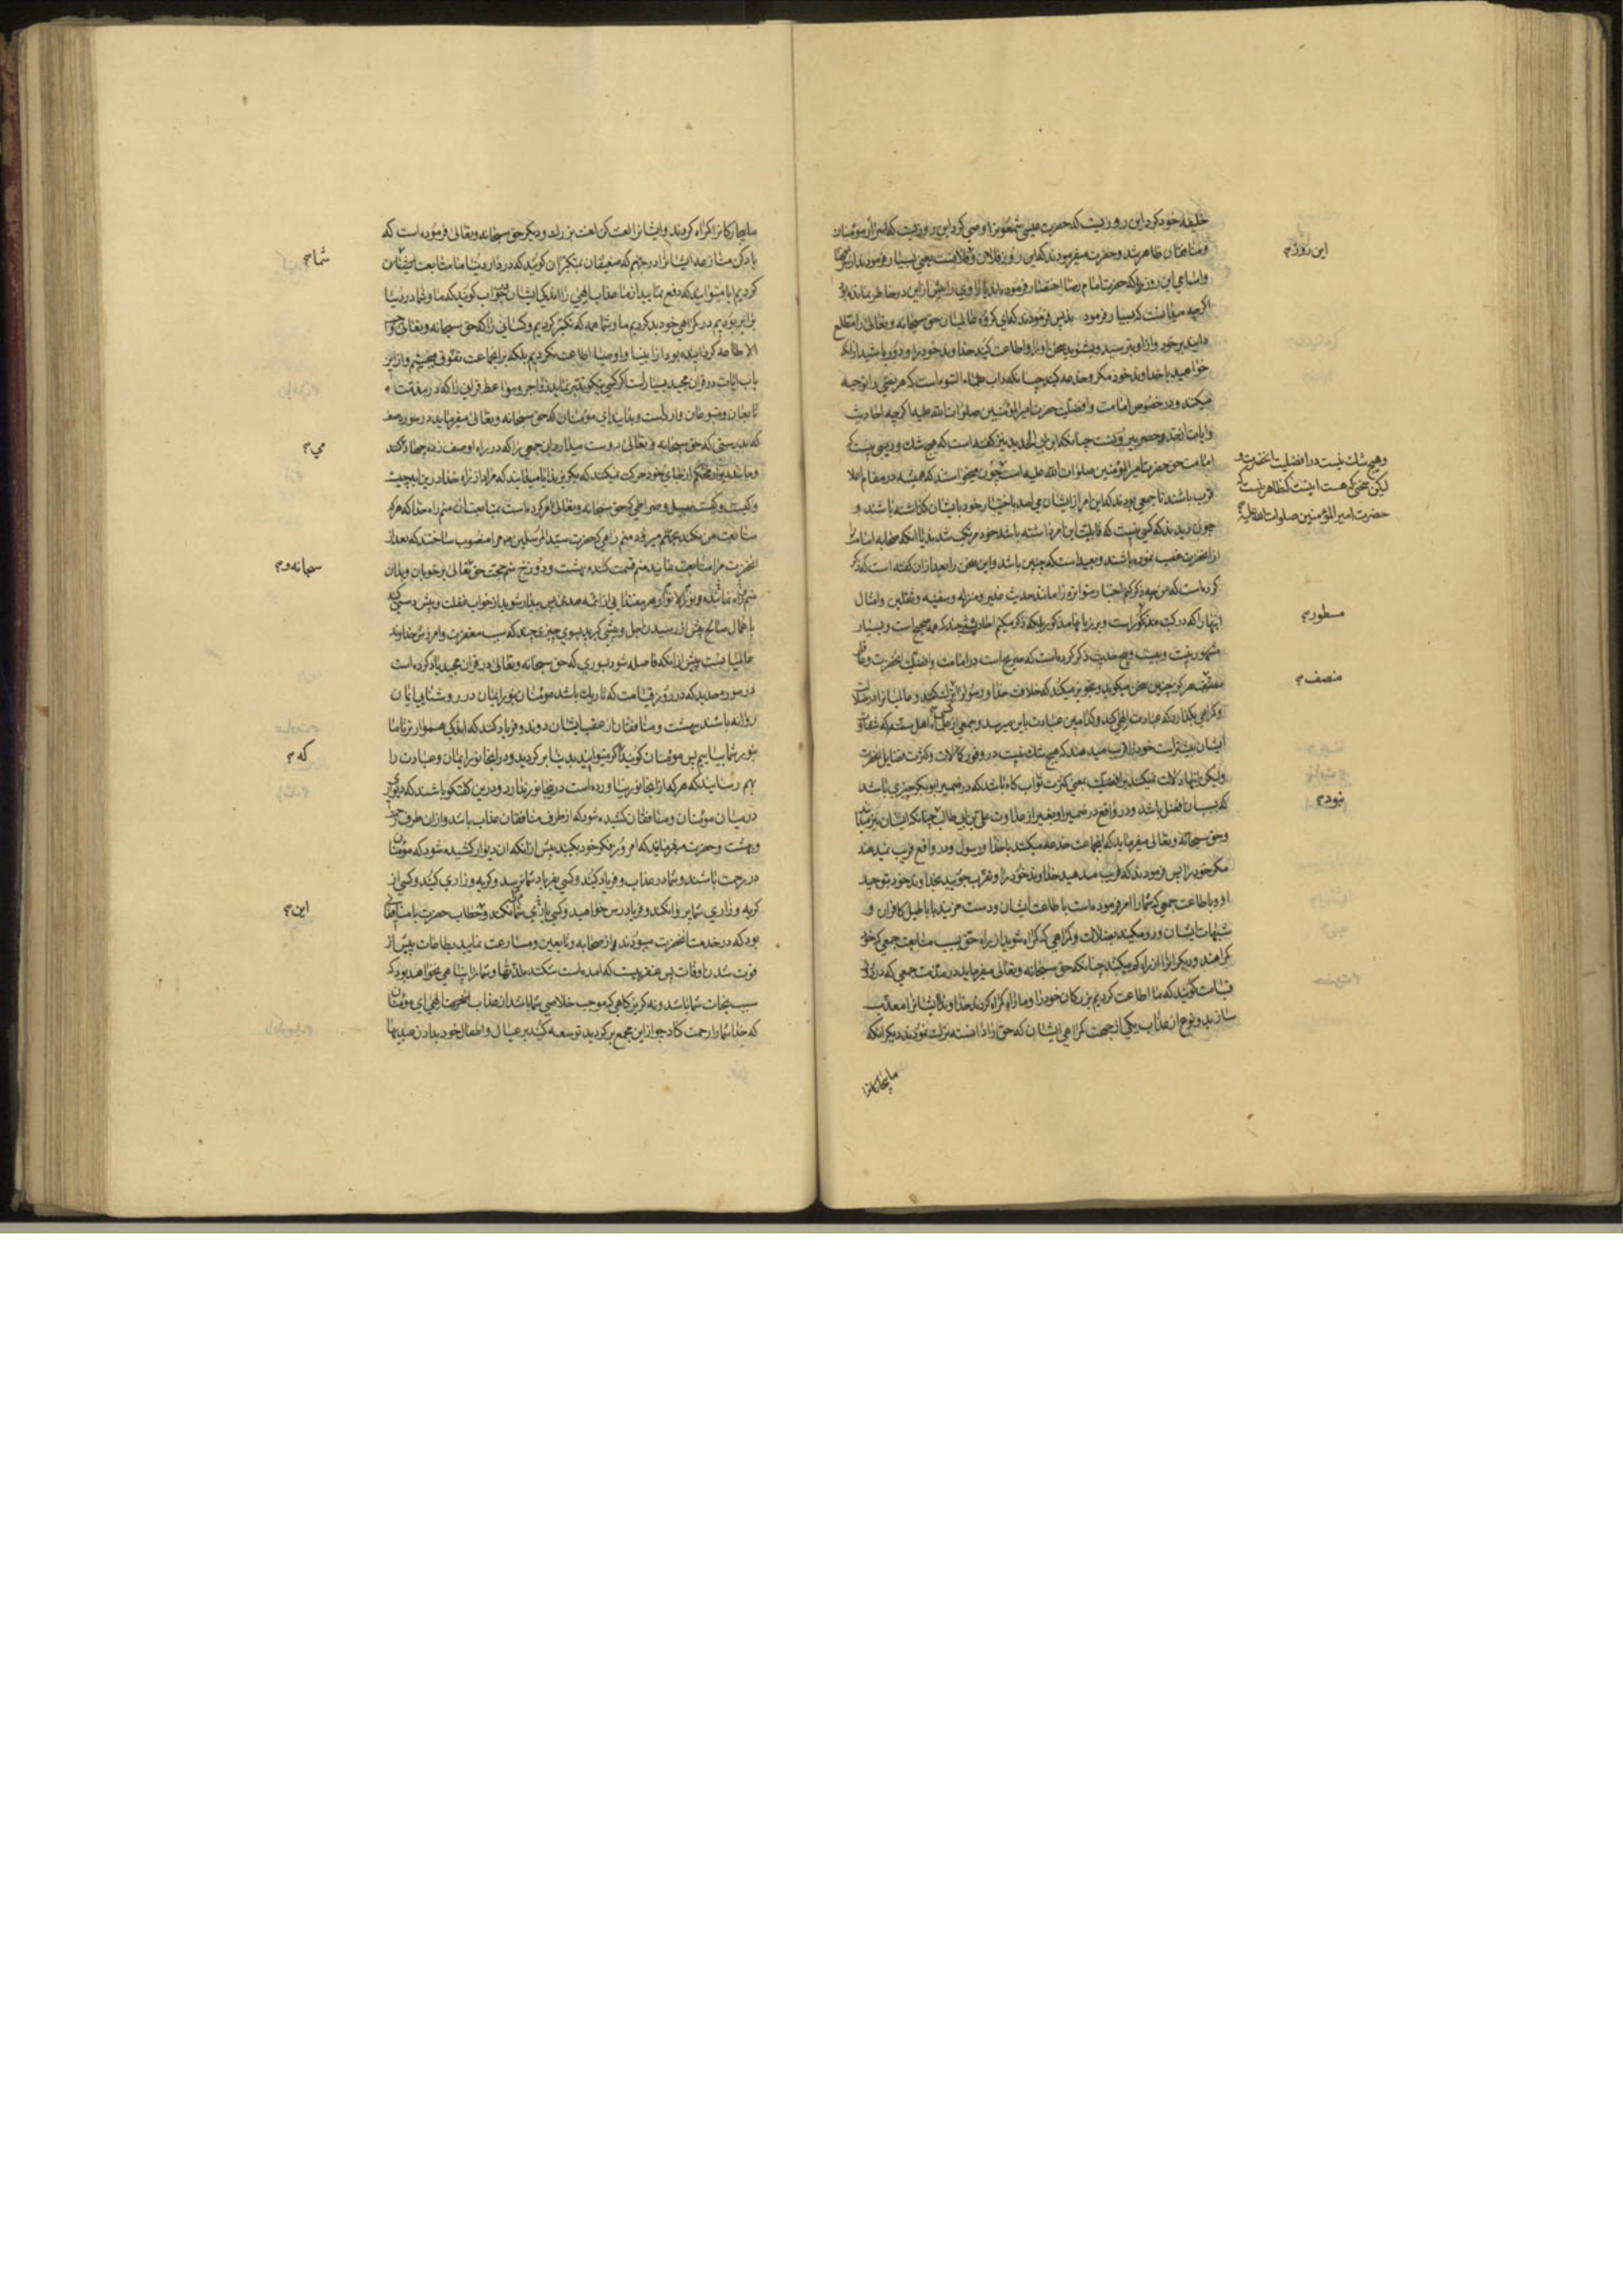 خلیفه خود کرد این روزیست که حضرت عیسی شمعون را وصی کرد این روزیست که اسرار مومنان
و منافقان ظاهر شد و حضرت میفرمودند که این روز فلان و فلانست یعنی بسیار فرمودند از
این روز
و اسامی این روز را که حضرت امام رضا اختصار فرموده باشد یا راوی را بیش از این در خاطر نمانده بود
اگرچه میدانست که بسیار فرمود پس فرمودند که ای گروه طالبان حق سبحانه و تعالی را مطلع
دانید بر خود و از او بترسید و بشنوید سخن او را و اطاعت کنید خداوند خود را و دور باشید از انکه
خواهید با خداوند خود مکر و خدعه کنید چنانکه داب است که هر نصی را توجیه
میکنند و در خصوص امامت و افضلیت حضرت امیر المؤمنین صلوات الله علیه اگرچه احادیث
و ایات انقدر و حصر بیرونست چنانکه ابن ابی الحدید نیز گفته است که هیچ شک و ریبی نیست که
وهیچ شک نیست در افضلیت انحضرت و
لیکن سخنی که هست اینست که ظاهر نیست که
حضرت امیر المؤمنین صلوات الله علیه
امامت حق حضرت امیر المؤمنین صلوات الله علیه است چون میخواستند که همیشه در مقام اعلا
قرب باشند تا جمعی بودند که این امر از ایشان می امد باختیار خود بایشان گذاشته باشند و
چون دیدند که کسی نیست که قابلیت این امر داشته باشد خود مرتکب شدند یا انکه صحابه امامت را
از انحضرت غصب نموده باشند و بعید است که چنین باشد و این سخن را بعد از ان گفته است که ذکر
کرده است که من همه ذکر نکردم اخبار متواتره را مانند حدیث غدیر و منزله و سفینه و ثقلین و امثال
اینها را که در کتب مذکور است و بر زبانها مذکور بلکه ذکر میکنم احادیثی چند که همه صحیح است و بسیار
مسطور
مشهور نیست و بیست و پنج حدیث ذکر کرده است که صریح است در امامت و افضلیت انحضرت و
منصف
هرگز چنین سخن میگوید و تجویز میکند که خلاف خدا و رسول کنند و عالمیان را در ضلالت
و گمراهی بگذارد که عبادت الهی کنید و کدامین عبادت باین میرسد و جمعی از علماء اهل سنت که
ایشان بیشتر است خود را فریب میدهند که هیچ شک نیست در وفور کمالات و کثرت فضایل انحضرت
ولیکن اینها دلالت نمیکند بر افضلیت بمعنی کثرت ثواب گاه باشد که در ضمیر ابوبکر چیزی باشد
نبود
که بسبب ان افضل باشد و در واقع در ضمیر او بغیر از عداوت علی بن ابی طالب چنانکه ایشان نیز میدانند
و حق سبحانه و تعالی میفرماید که انجماعت خدعه میکنند با خدا و رسول و در واقع فریب نمیدهند
مگر خود را پس فرمودند که فریب مدهید خداوند خود را و تقرب جویید بخداوند خود بتوحید
او و باطاعت جمعی که شما را امر فرموده است باطاعت ایشان و دست مزنید باباطیل کافران و
شبهات ایشان و رو مکنید بضلالت و گمراهی که گمراه شوید از راه حق بسبب متابعت جمعی که خود
گمراهند و دیگران را از راه گم میکنند چنانکه حق سبحانه و تعالی میفرماید در مذمت جمعی که در روز
قیامت گویند که ما اطاعت کردیم بزرگان خود را و ما را گمراه کردند خداوندا ایشان را معذب
سازید و نوع از عذاب یکی از جهت گمراهی ایشان که حق را دانسته نمودند دیگر انکه
ما بیچارگانرا
ما بیچارگانرا گمراه کردند و ایشانرا لعنت کن لعنت بزرگ و دیگر حق سبحانه و تعالی فرموده است که
یاد کن منازعه ایشانرا در جهنم که ضعیفان بمتکبران گویند که در دار دنیا ما متابعت
شما
کردیم ایا میتوانید که دفع نمایید از ما عذاب الهی را اندکی ایشان جواب گویند که ما و شما در دنیا
برابر بودیم در گمراهی خود بد کردیم ما و شما همه که تکبر کردیم و کسانی را که حق سبحانه و تعالی
الاطاعه گردانیده بود از انبیا و اوصیا اطاعت نکردیم بلکه بر انجماعت تفوق میجستیم و از این
باب ایات در قران مجید بسیار است اگر کسی نیکو تدبر نماید زواجر و مواعظ قرانی را که در مذمت
تابعان و متبوعان وارد است و بدانید ای مومنان که حق سبحانه و تعالی میفرماید در سوره صف
که بدرستی که حق سبحانه و تعالی دوست میدارد ان جمعی را که در راه او صف زده جهاد کنند
می
و مانند دیوار محکم از جای خود حرکت نمیکنند که بگریزند ایا میدانید که مراد از راه خدا در این ایه چیست
و کیست و کیست سبیل و صراطی که حق سبحانه و تعالی امر کرده است بمتابعت ان منم راه خدا که هر که
متابعت من نکند بجهنم میرود منم راهی که حضرت سید المرسلین مرا منصوب ساختند که بعد از
انحضرت مرا متابعت نمایند منم قسمت کننده بهشت و دوزخ منم حجت حق تعالی بر خوبان و بدان
سبحانه و
منم پس بیدار شوید از خواب غفلت و پیش دستی کنید
باعمال صالح پیش از رسیدن اجل و پیشی گیرید بسوی چیزی چند که سبب مغفرت و امرزش خداوند
عالمیانست پیش از انکه فاصله شود سوری که حق سبحانه و تعالی در قران مجید یاد کرده است
در سوره حدید که در روز قیامت که تاریک باشد مومنان بنور ایمان در روشنایی ایمان
روانه باشند ببهشت و منافقان از عقب ایشان دوند و فریاد کنند که اندکی هموارتر تا ما
بنور شما بیاییم پس مومنان گویند اگر میتوانید بدنیا بر گردید و در انجا نور ایمان و عبادت را
که
بهم رسانید که هر که از انجا نور نیاورده است در اینجا نور ندارد و درین گفتگو باشند که دیواری
در میان مومنان و منافقان کشیده شود که از طرف منافقان عذاب باشد و از ان طرف
و بهشت و حضرت میفرمایند که امروز فکر خود بکنید پیش از انکه ان دیوار کشیده شود که مومنان
در رحمت باشند و شما در عذاب و فریاد کنید و کسی بفریاد شما نرسد و گریه و زاری کنید و کسی از
گریه و زاری شما پروا نکند و فریادرس خواهید و کسی یاری شما نکند و خطاب حضرت با منافقان
این
بود که در خدمت انحضرت میبودند و از صحابه و تابعین و مسارعت نمایید بطاعات پیش از
فوت شدن اوقات پس عنقریب که امده است شکننده لذتها و شما را پناهی نخواهد بود که
سبب نجات شما باشد و نه گریزگاهی که موجب خلاصی شما باشد از عذاب الهی ای مومنان
که خدا شما را رحمت کناد چو از این مجمع بر گردید توسعه کنید بر عیال و اطفال خود بدادن عیدیها